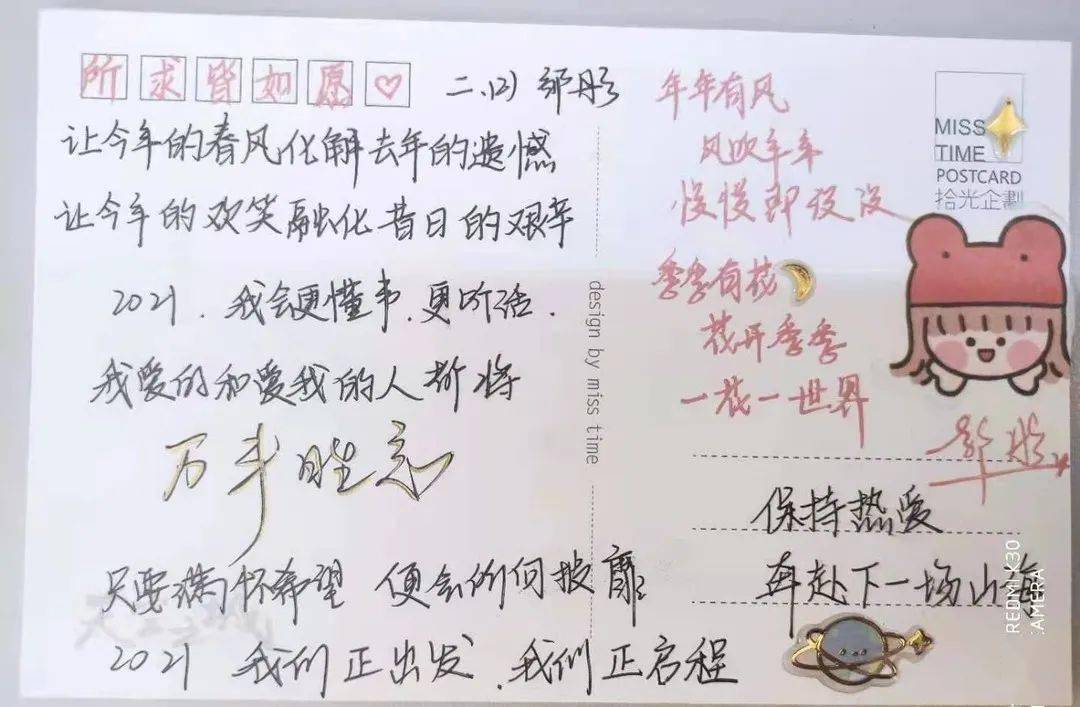 所求皆如愿♡
二.(2) 邹彤
让今年的春风化解去年的遗憾
让今年的欢笑融化昔日的艰辛
2021.我会更懂事.更听话.
我爱的和爱我的人都将
万事胜意
只要满怀希望 便会所向披靡
2021 我们正出发.我们正启程
design by miss time
年年有风
风吹年年
慢慢即
季季有花
花开季季
一花一世界
保持热爱
奔赴下一场山海
MISS
TIME
POSTCARD
拾光企劃
REDMI K30
AMERA